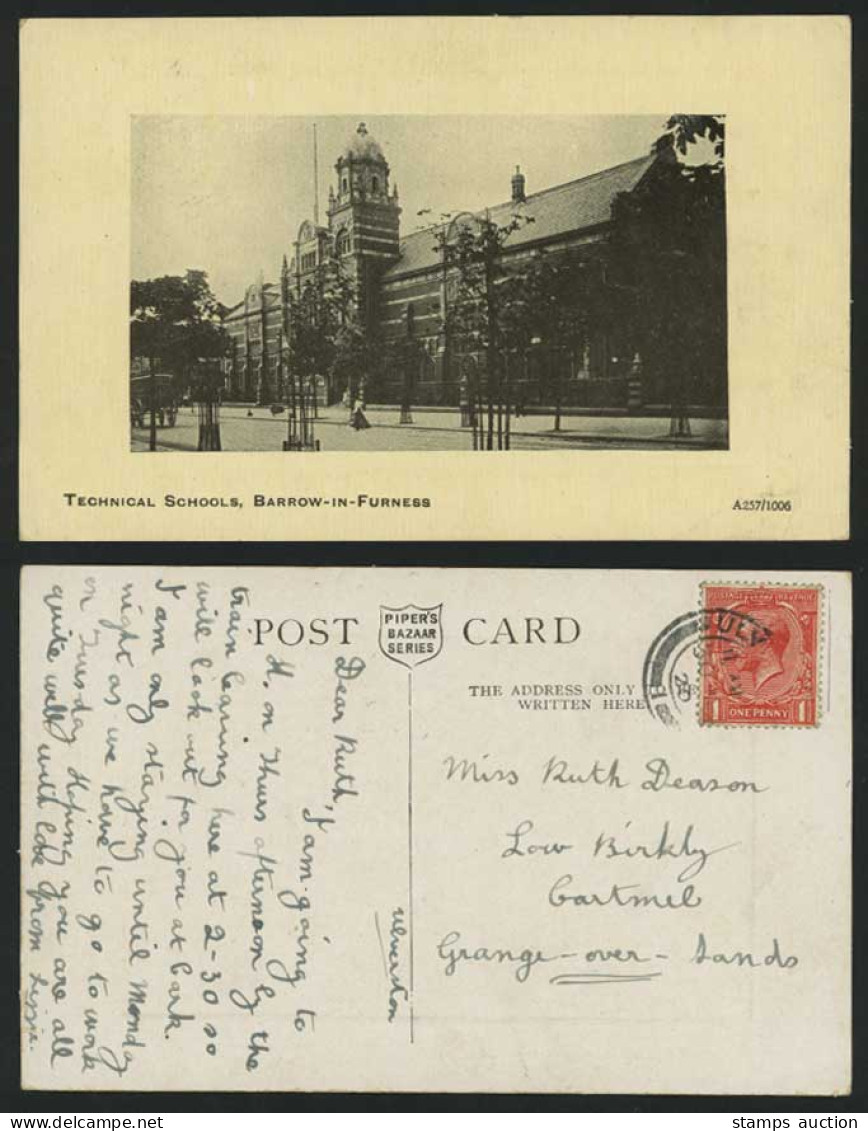 TECHNICAL SCHOOLS, BARROW-IN-FURNESS
A257/1006
POST CARD
PIPER'S
BAZAAR
SERIES
THE ADDRESS ONLY
WRITTEN HERE
ONE PENNY
Ulverston
Dear Ruth, I am going to
H. on Thurs afternoon by the
train leaving here at 2-30 so
will look out for you at Cark.
I am only staying until Monday
night as we have to go to work
on Tuesday Hoping you are all
quite well with love from Lizzie.
Miss Ruth Deason
Low Birkly
Cartmel
Grange-over-Sands
stamps auction